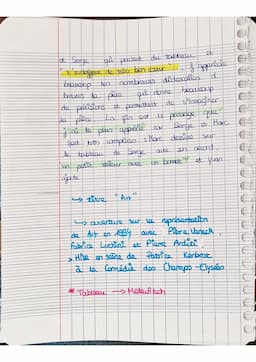 de Serge qui parlent du tableau et
"s'engagea de très bon cœur". J'apprécie
beaucoup les nombreuses didascalies à
travers la pièce qui donne beaucoup
de précisions et permettent de s'imaginer
la pièce. La fin est le passage que
j'ai le plus apprécié car Serge et Marc
sont bien complices : Marc dessine sur
le tableau de Serge avec son accord
un petit skieur avec un bonnet et Yvan
↳ titre "Art"
↳ ouverture sur la représentation
de Art en 1994 avec Pierre Vaneck,
Fabrice Luchini et Pierre Arditi.
> Mise en scène de Patrice Kerbrat
à la Comédie des Champs-Elysées
* Tableau → Malevitch